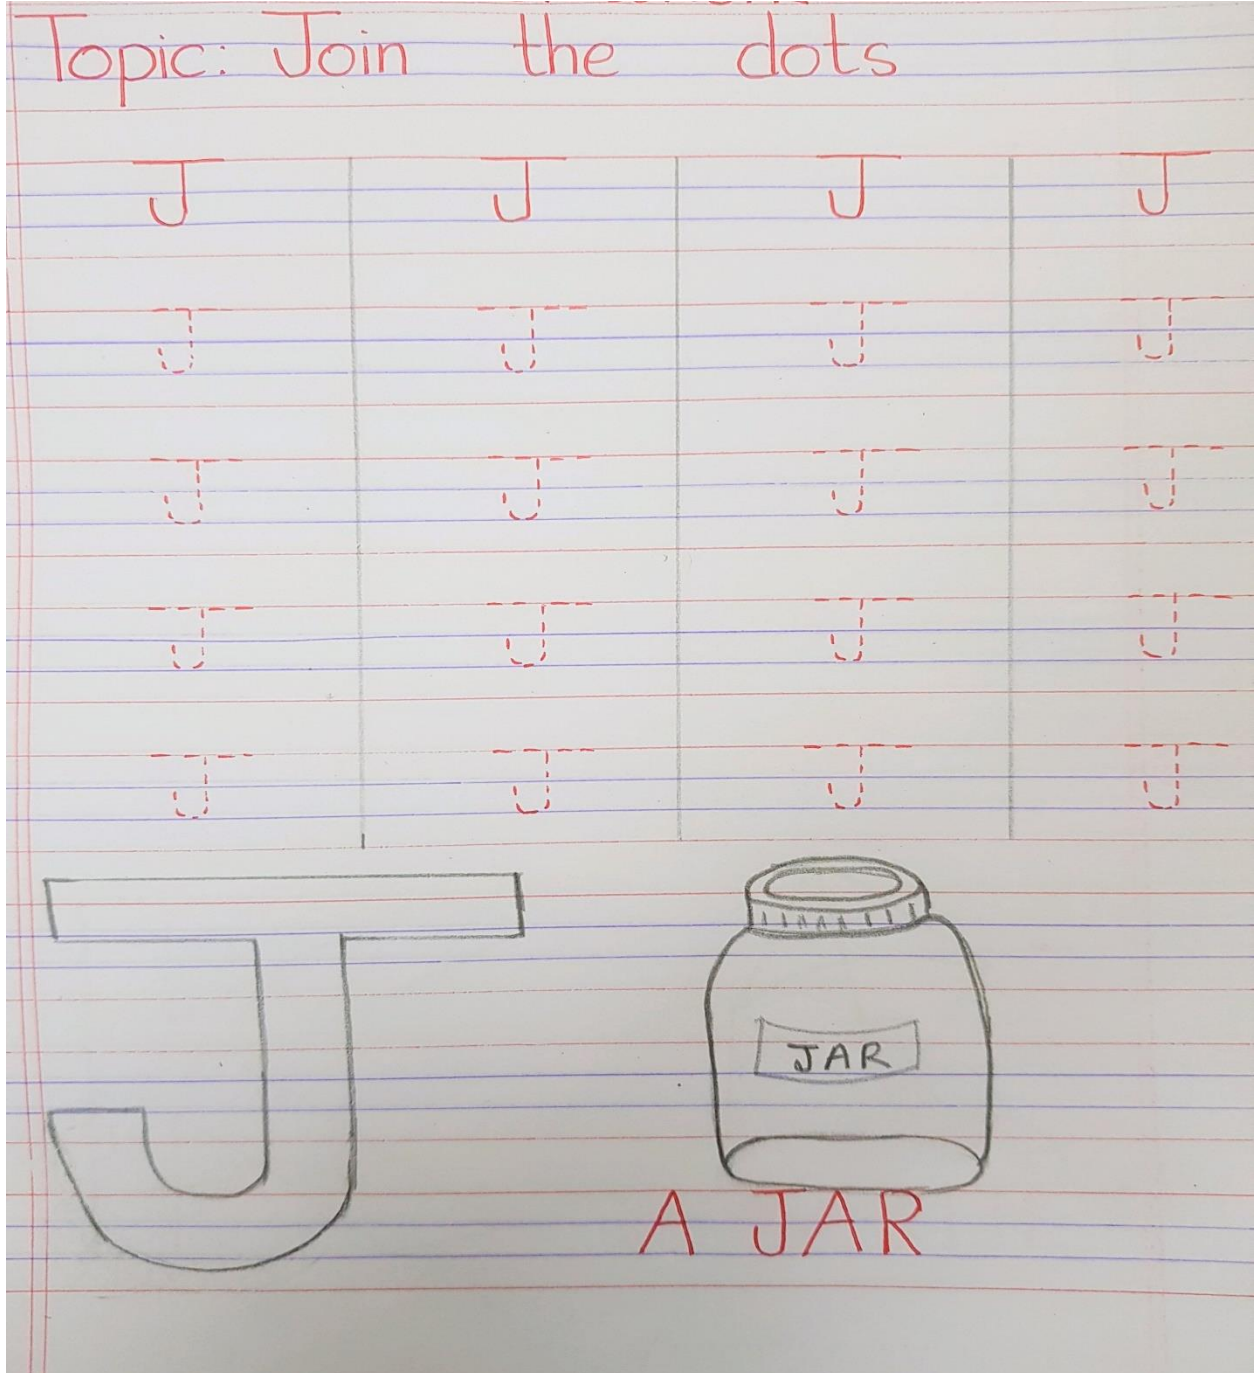 Topic: Join the dots
J J J J
J J J J
J J J J
J J J J
J J J J
J
JAR
A JAR